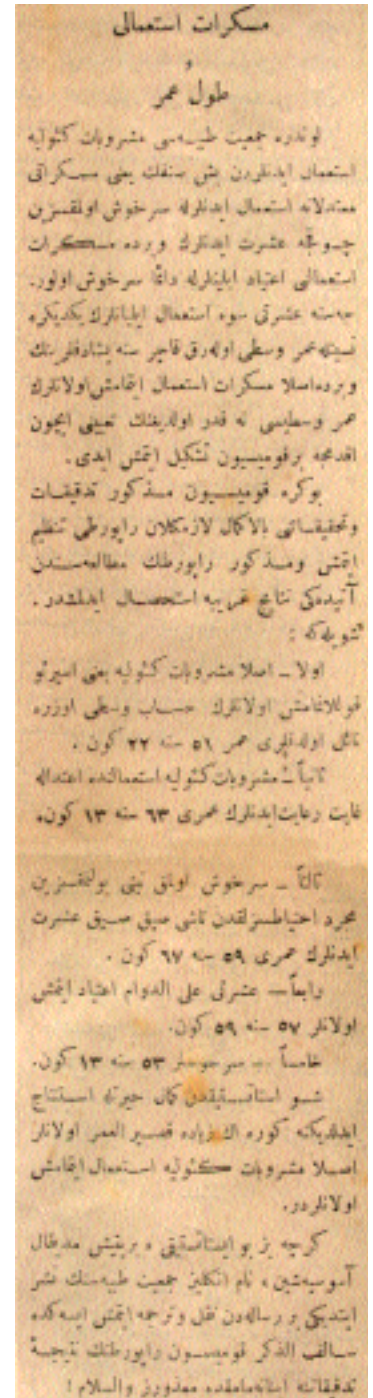 مسكرات استعمالی
و
طول عمر
لوندره جمعیت طبیه‌سی مشروبات کئولیه
استعمال ایدنلردن بش صنفك یعنی مسكراتی
معتدلانه استعمال ایدنلرله سرخوش اولقسزین
چوقجه عشرت ایدنلرك و برده مسكرات
استعمالی اعتیاد ایلینلرله دائما سرخوش اولور.
جه‌سنه عشرتی سوء استعمال ایلیانلرك یکدیگره
نسبتله عمر وسطی اوله‌رق قاچر سنه یشادقلرینك
و برده اصلا مسكرات استعمال ایتمامش اولانلرك
عمر وسطیسی نه قدر اولدیغنك تعیینی ایچون
اقدمجه برقومیسیون تشكیل ایتمش ایدی.
بوكره قومیسیون مذكور تدقیقات
وتحقیقاتی بالاكمال لازمكلان راپورطی تنظیم
ایتمش ومذكور راپورطك مطالعه‌سندن
آتیده‌كی نتایج غریبه استحصال ایدلمشدر.
شویله‌كه :
اولا ــ اصلا مشروبات كئولیه یعنی اسپرتو
قوللانمامش اولانلرك حساب وسطی اوزره
نائل اولدقلری عمر ٥١ سنه ٢٢ كون .
ثانیاً ــ مشروبات كئولیه استعمالنده اعتداله
غایت رعایت ایدنلرك عمری ٦٣ سنه ١٣ كون.
ثالثاً ــ سرخوش اولمق نیتی بولنمقسزین
مجرد احتیاطسزلقدن ناشی صیق صیق عشرت
ایدنلرك عمری ٥٩ سنه ٦٧ كون .
رابعاً ــ عشرتی علی الدوام اعتیاد ایتمش
اولانلر ٥٧ سنه ٥٩ كون.
خامساً ــ سرخوشلر ٥٣ سنه ١٣ كون.
شو استاتستیقدن كمال حیرتله استنتاج
ایدلدیكنه كوره اك زیاده قصیر العمر اولانلر
اصلا مشروبات كئولیه استعمال ایتمامش
اولانلردر.
كرچه بز بو ایستاتستیقی « بریتیش مدیقال
آسوسیه‌شین » نام انكلیز جمعیت طبیه‌سنك نشر
ایتدیكی بر رساله‌دن نقل وترجمه ایتمش ایسه‌كده
سالف الذكر قومیسیون راپورطنك نتیجهٔ
تدقیقاتنه اینانمامقده معذورز والسلام !